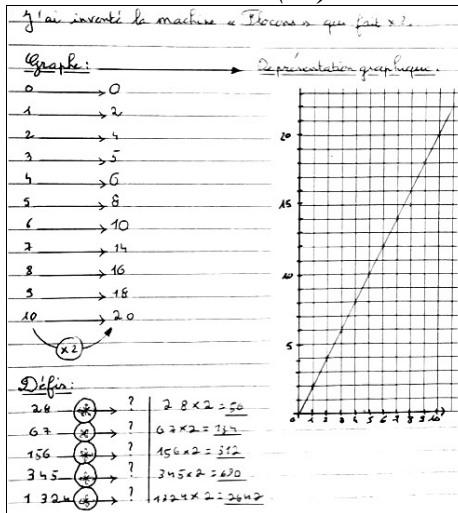 J'ai inventé la machine « Flocons » qui fait x2.
Graphe :
Représentation graphique.
0 → 0
1 → 2
2 → 4
3 → 5
4 → 6
5 → 8
6 → 10
7 → 14
8 → 16
9 → 18
10 → 20
x2
20
15
10
5
0 1 2 3 4 5 6 7 8 9 10
Défis :
28 → ? 28 x 2 = 50
67 → ? 67 x 2 = 134
156 → ? 156 x 2 = 312
345 → ? 345 x 2 = 690
1 324 → ? 1324 x 2 = 2642